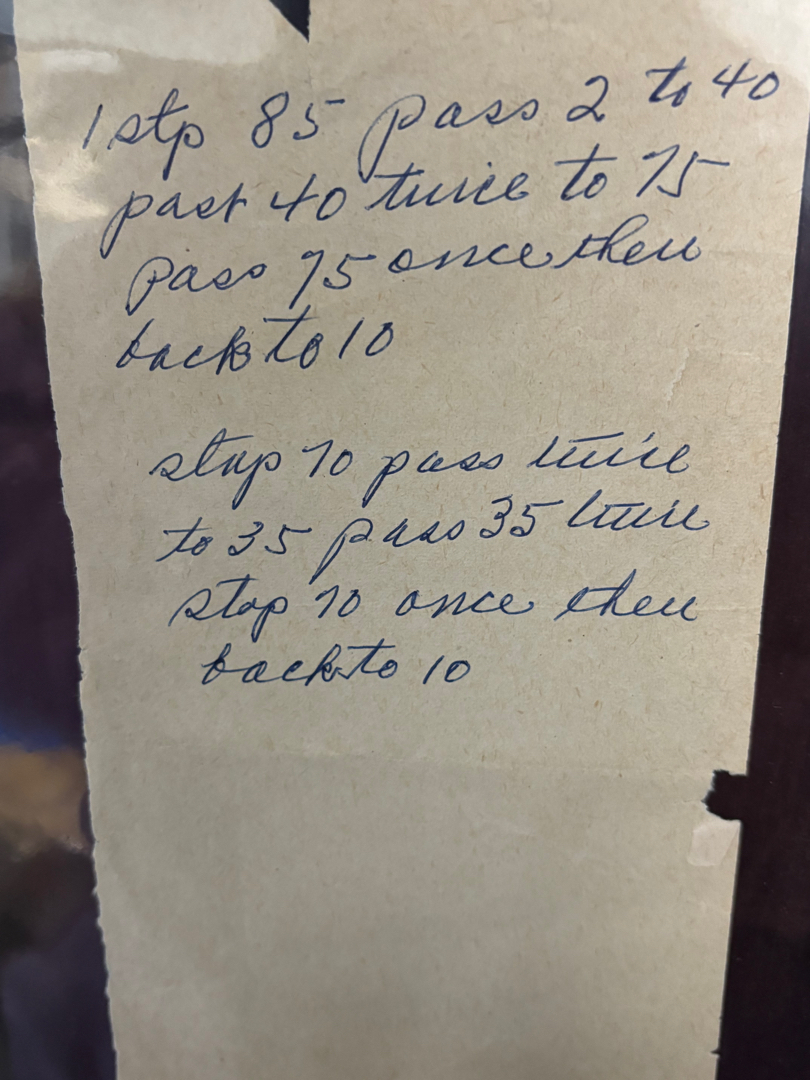 1 stp 85 pass 2 to 40
past 40 twice to 75
pass 75 once then
back to 10
stop 70 pass twice
to 35 pass 35 twice
stop 70 once then
back to 10